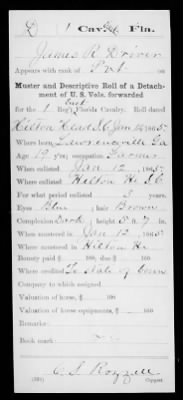 D 1 Cav. Fla.
James R Driver
Appears with rank of Pvt on
Muster and Descriptive Roll of a Detach-
ment of U. S. Vols. forwarded
East
for the 1 Reg't Florida Cavalry. Roll dated
Hilton Head S.C. Jan 12 1865.
Where born Lawrenceville Ga
Age 19 y'rs; occupation Farmer
When enlisted Jan 12, 1865.
Where enlisted Hilton Hd S.C.
For what period enlisted 3 years.
Eyes Blue; hair Brown
Complexion Dark; height 5 ft. 7 in.
When mustered in Jan 12, 1865.
Where mustered in Hilton Hd
Bounty paid $ 100; due $ 100
Where credited To State of Conn
Company to which assigned
Valuation of horse, $ 100
Valuation of horse equipments, $ 100
Remarks:
Book mark:
Copyist.